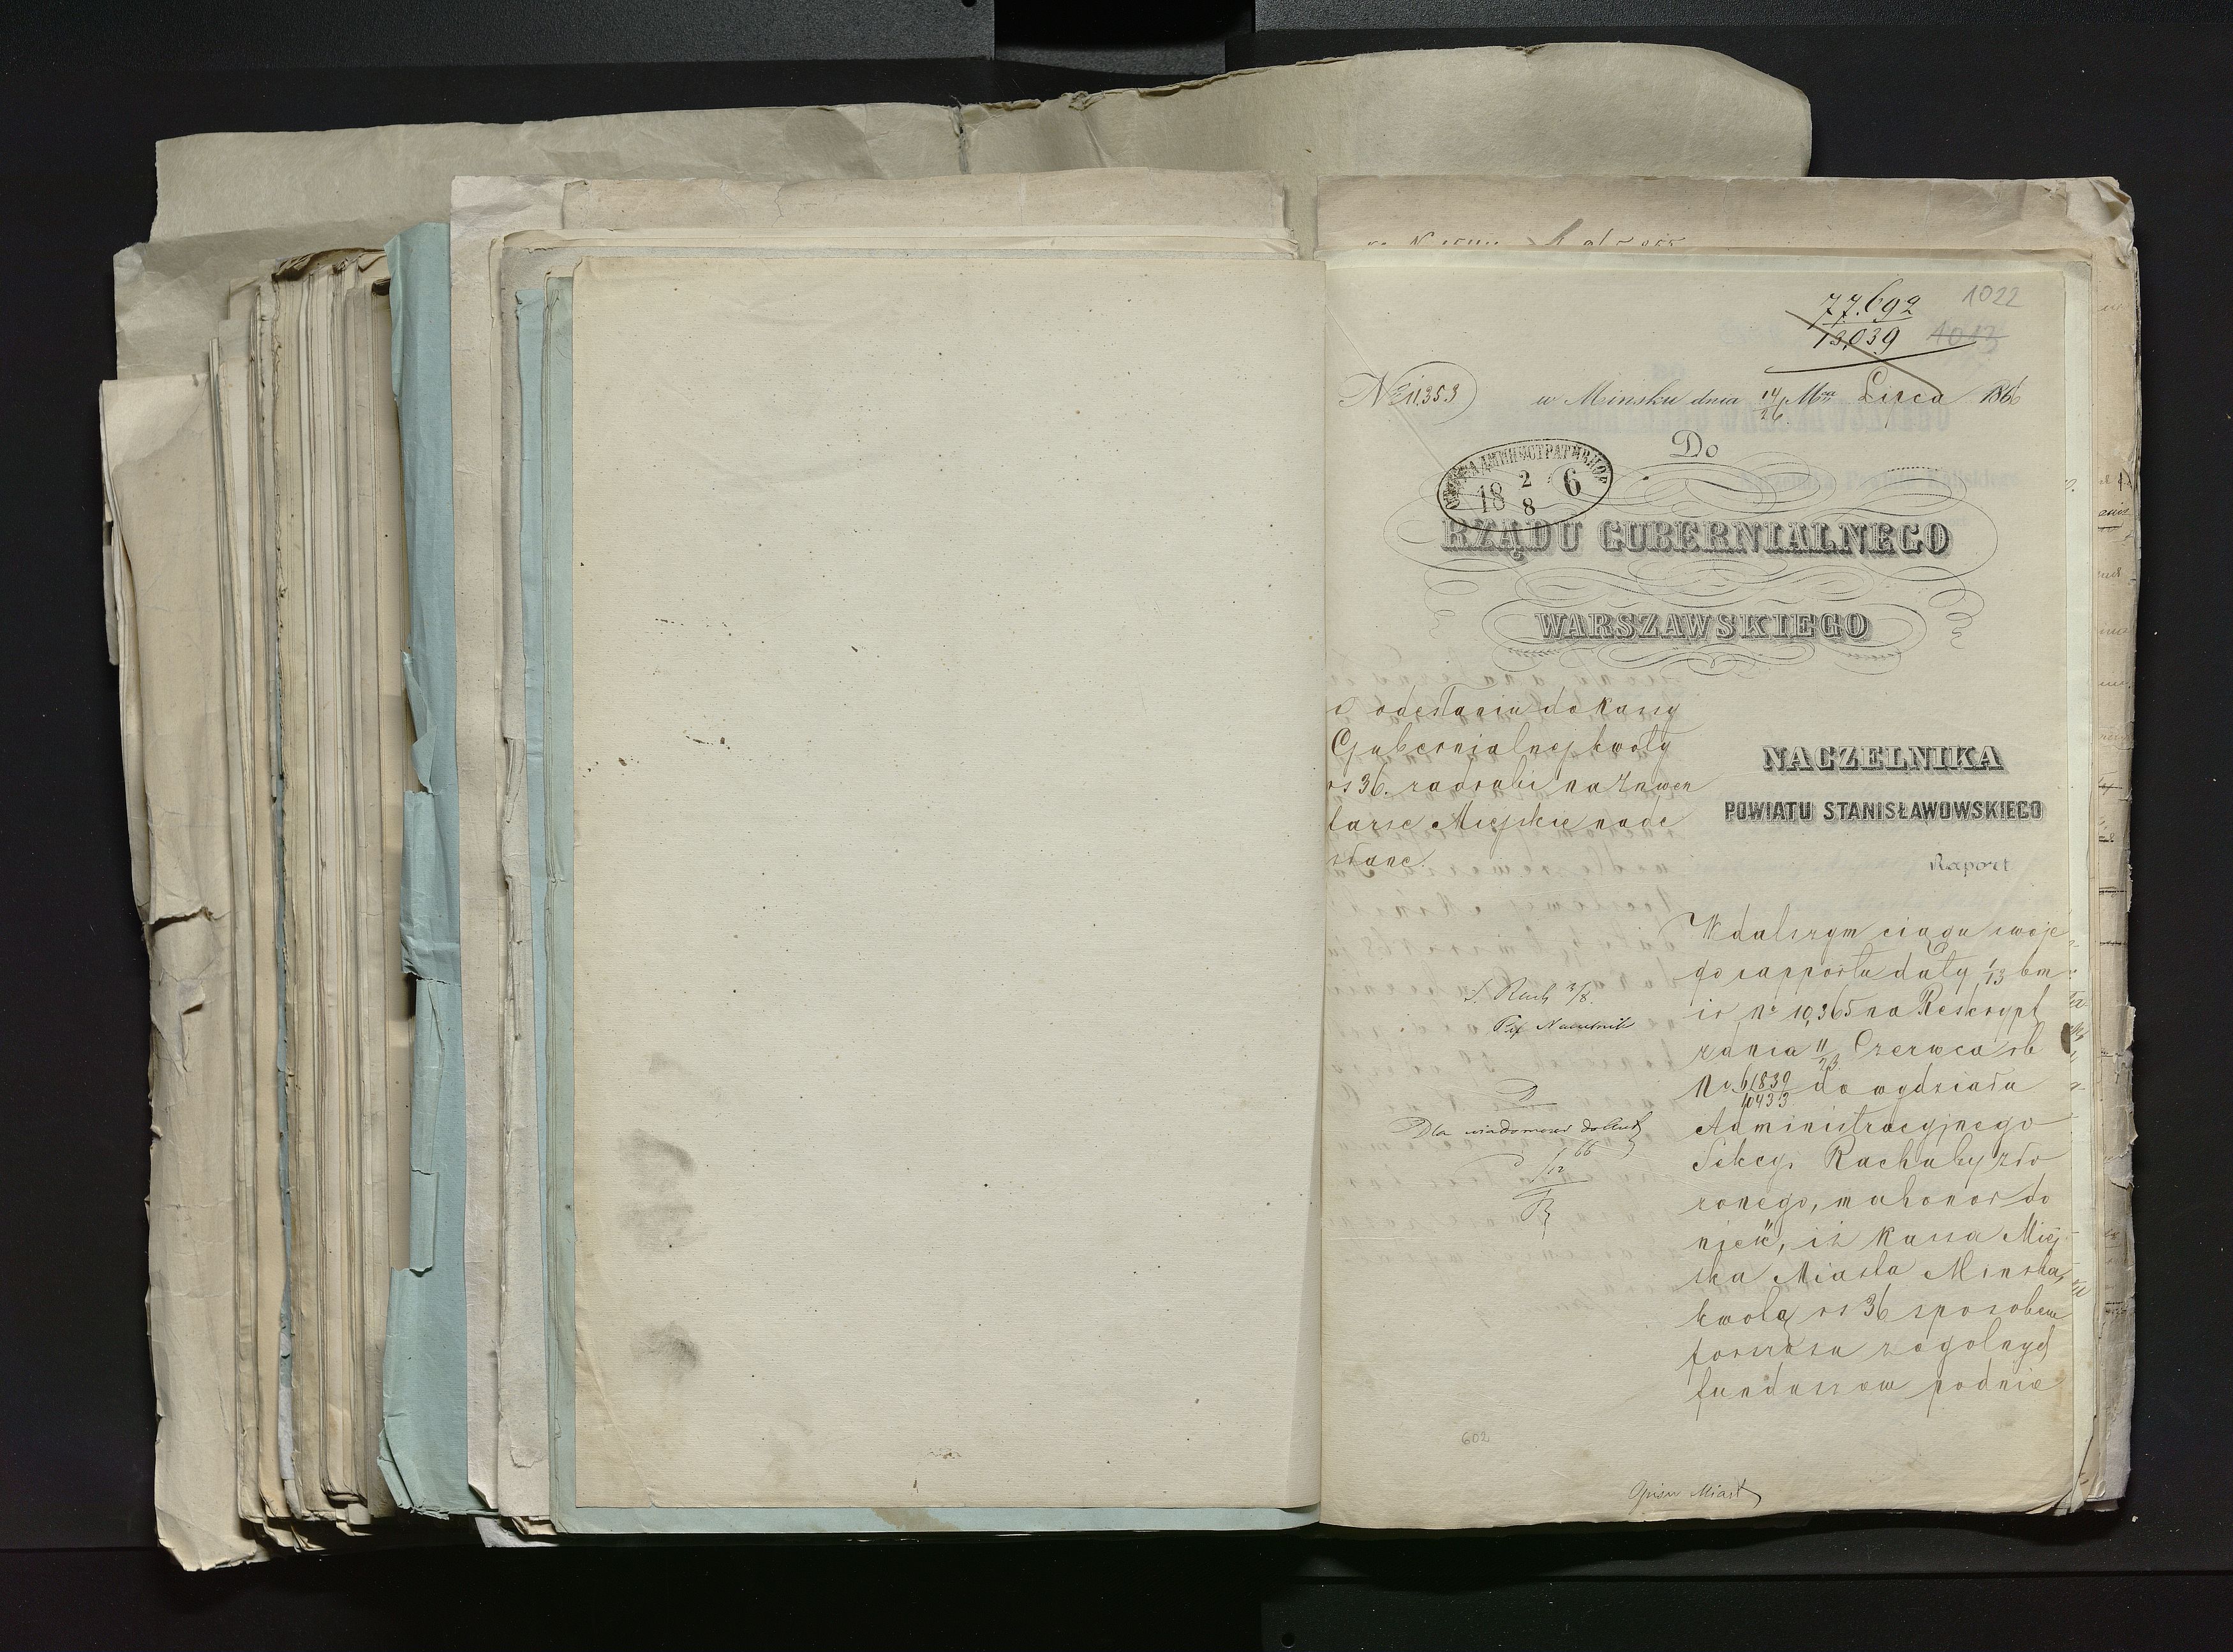 77.692
13,039
1022
1013
N 11,353
w Minsku dnia 14/26 Mca Lipca 1866
Do
АДМИНИСТРАТИВНОЕ
18 2/8 6
RZĄDU GUBERNIALNEGO
WARSZAWSKIEGO
o odesłaniu do Kassy
Gubernialnej kwoty
rs 36. za druki na Inwen
tarze Miejskie nade
słane.
NACZELNIKA
POWIATU STANISŁAWOWSKIEGO
Raport
W dalszym ciągu swoje
go rapportu daty 1/13 bm
ir No 10,365 na Reskrypt
z dnia 11/23 Czerwca rb
No 61839/10433 do wydziału
Administracyjnego
Sekcyi Rachuby zło
żonego, ma honor do
nieść, iż Kassa Miej
ska Miasta Minska,
kwotę rs 36 sposobem
forszusu z ogolnych
funduszow podnie
S. Rach 3/8.
Dla wiadomosci
66
602
Opisu Miast